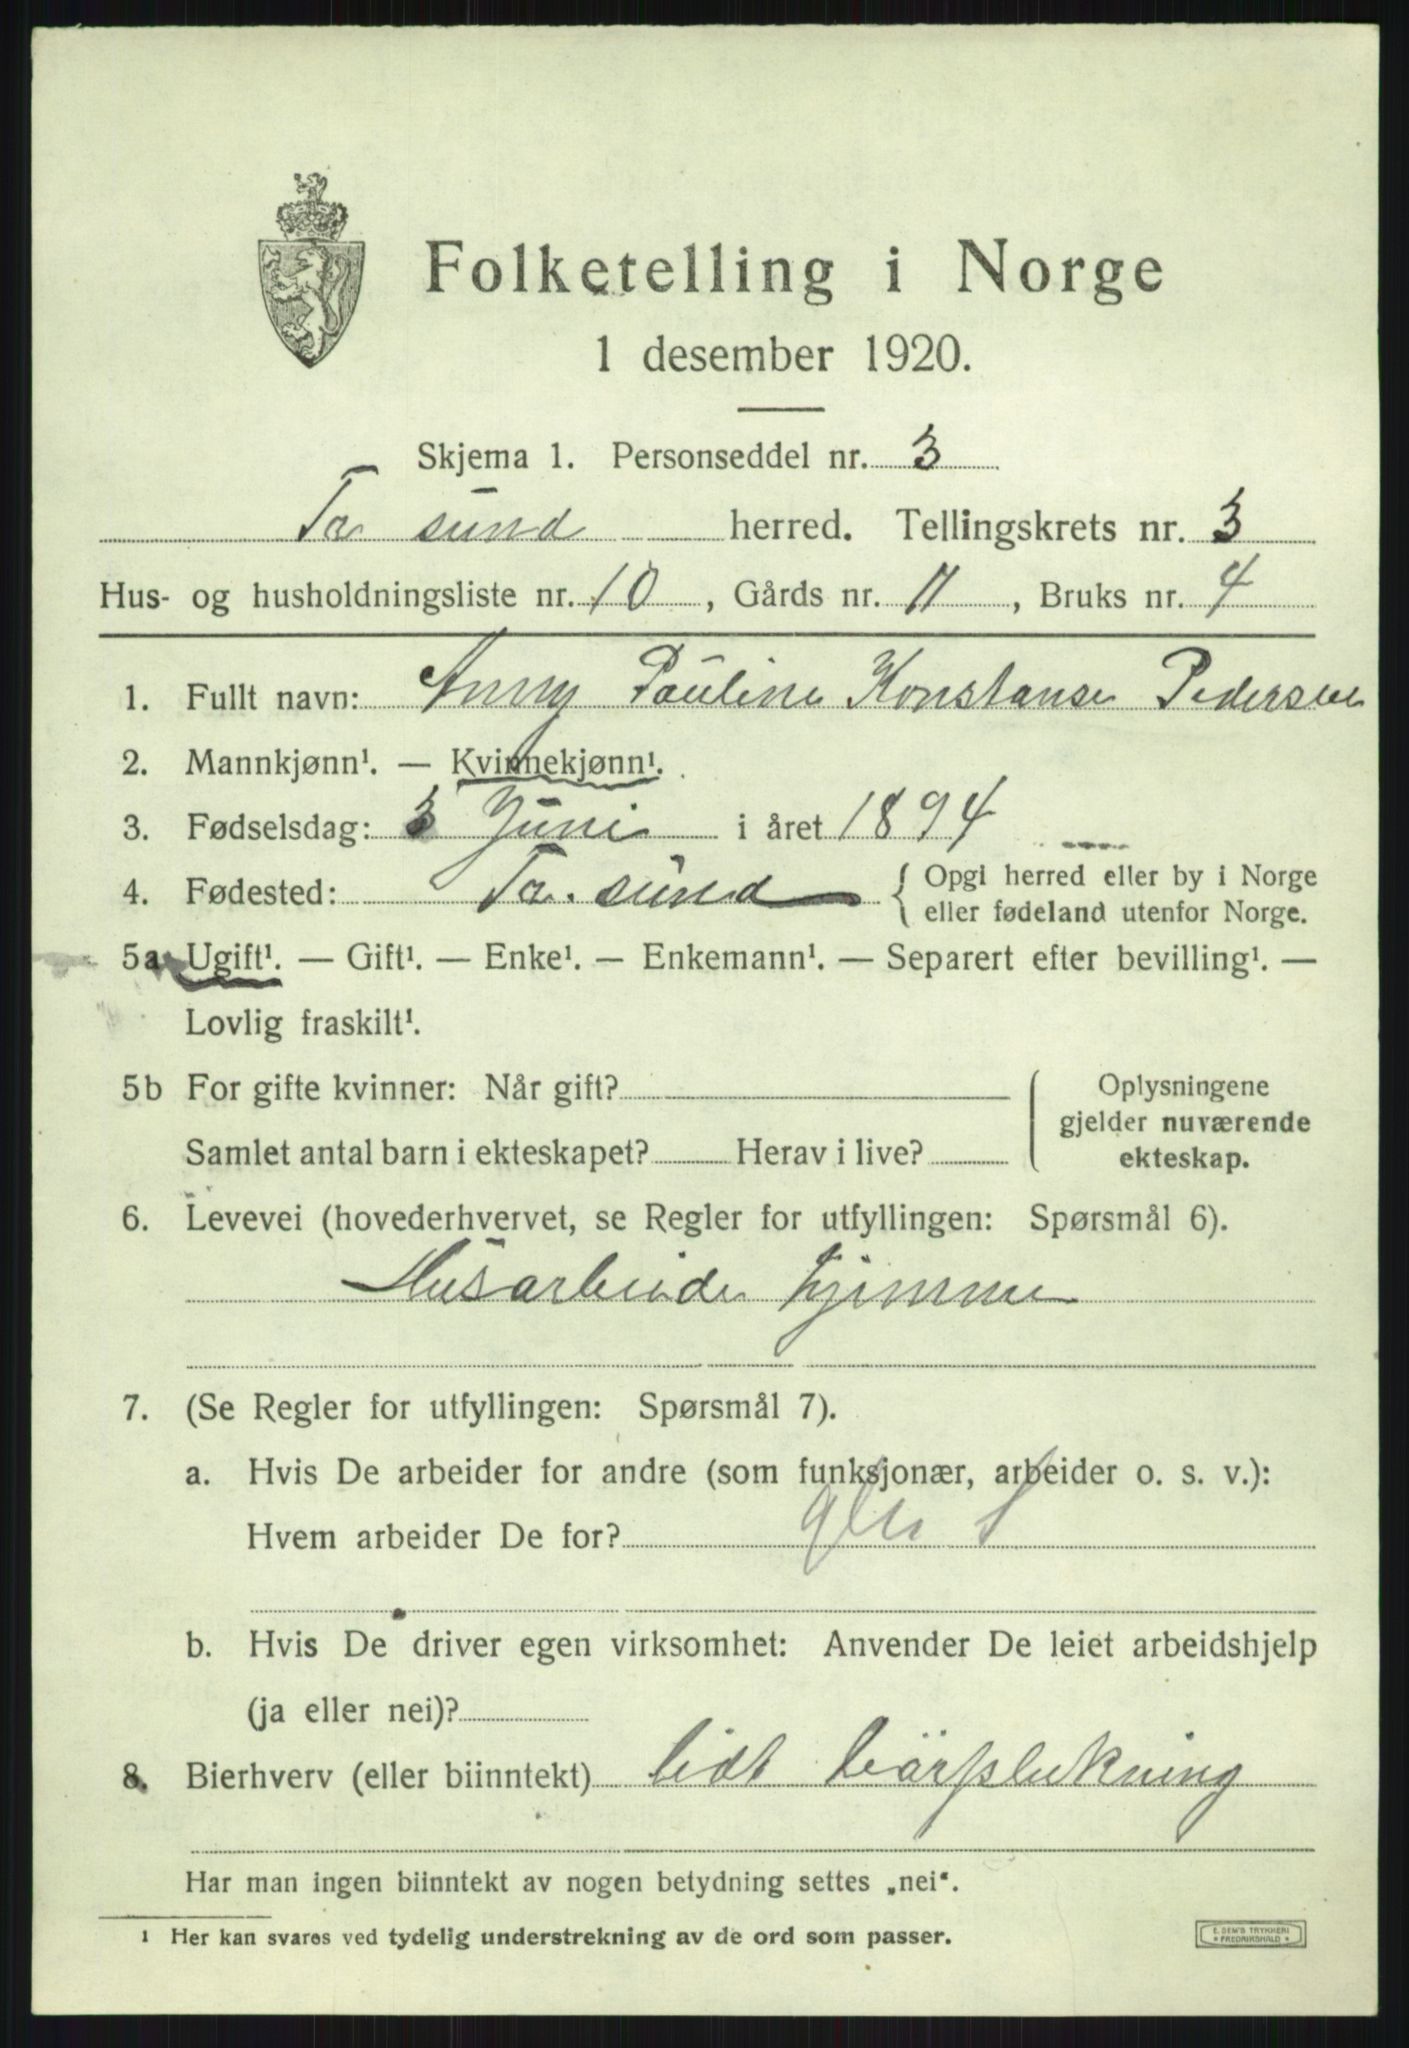 Folketelling i Norge
1 desember 1920.
Skjema 1. Personseddel nr. 3
Tr sund herred. Tellingskrets nr. 3
Hus- og husholdningsliste nr. 10, Gårds nr. 11, Bruks nr. 4
1. Fullt navn: Anny Pauline Konstanse Pedersen
2. Mannkjønn¹. — Kvinnekjønn¹.
3. Fødselsdag: 3 Juni i året 1894
4. Fødested: Tr. sund { Opgi herred eller by i Norge
eller fødeland utenfor Norge.
5a Ugift¹. — Gift¹. — Enke¹. — Enkemann¹. — Separert efter bevilling¹. —
Lovlig fraskilt¹.
5b For gifte kvinner: Når gift? { Oplysningene
gjelder nuværende
Samlet antal barn i ekteskapet? Herav i live? ekteskap.
6. Levevei (hovederhvervet, se Regler for utfyllingen: Spørsmål 6).
Husarbeide hjemme
7. (Se Regler for utfyllingen: Spørsmål 7).
a. Hvis De arbeider for andre (som funksjonær, arbeider o. s. v.):
Hvem arbeider De for?
b. Hvis De driver egen virksomhet: Anvender De leiet arbeidshjelp
(ja eller nei)?
8. Bierhverv (eller biinntekt) lidt bärplukning
Har man ingen biinntekt av nogen betydning settes „nei“.
¹ Her kan svares ved tydelig understrekning av de ord som passer.
E. SEM'S TRYKKERI
* FREDRIKSHALD *